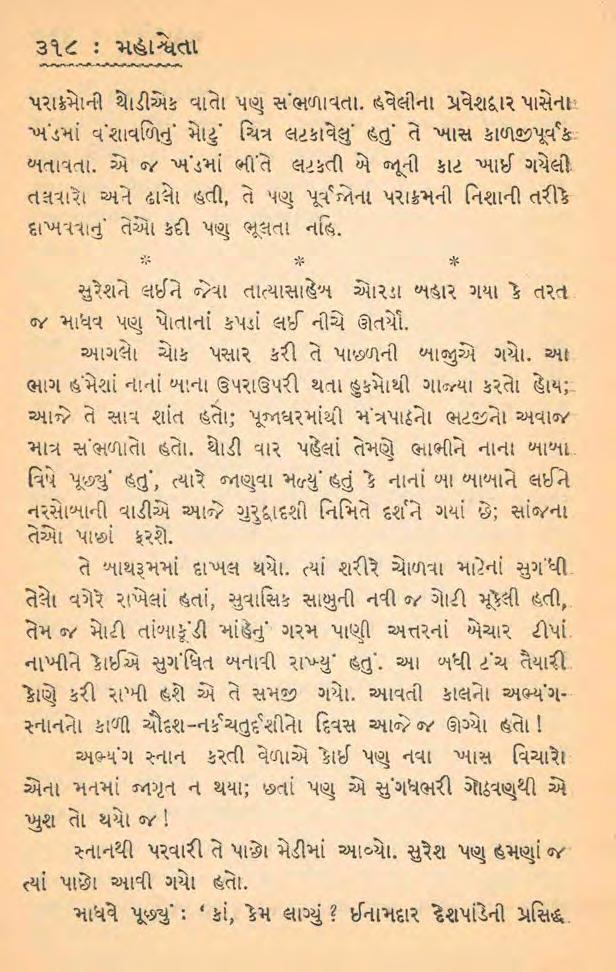 ૩૧૮ : મહાશ્વેતા
પરાક્રમોની થોડીએક વાતો પણ સંભળાવતા. હવેલીના પ્રવેશદ્વાર પાસેના
ખંડમાં વંશાવળિનું મોટું ચિત્ર લટકાવેલું હતું તે ખાસ કાળજીપૂર્વક
બતાવતા. એ જ ખંડમાં ભીંતે લટકતી બે જૂની કાટ ખાઈ ગયેલી
તલવારો અને ઢાલો હતી, તે પણ પૂર્વજોના પરાક્રમની નિશાની તરીકે
દાખવવાનું તેઓ કદી પણ ભૂલતા નહિ.
* * *
સુરેશને લઈને જેવા તાત્યાસાહેબ ઓરડા બહાર ગયા કે તરત
જ માધવ પણ પોતાનાં કપડાં લઈ નીચે ઊતર્યો.
આગલો ચોક પસાર કરી તે પાછળની બાજુએ ગયો. આ
ભાગ હંમેશાં નાનાં બાના ઉપરાઉપરી થતા હુકમોથી ગાજ્યા કરતો હોય;
આજે તે સાવ શાંત હતો; પૂજાઘરમાંથી મંત્રપાઠનો ભટજીનો અવાજ
માત્ર સંભળાતો હતો. થોડી વાર પહેલાં તેમણે ભાભીને નાના બાબા
વિષે પૂછ્યું હતું, ત્યારે જાણવા મળ્યું હતું કે નાનાં બા બાબાને લઈને
નરસોબાની વાડીએ આજે ગુરુદ્વાદશી નિમિતે દર્શને ગયાં છે; સાંજના
તેઓ પાછાં ફરશે.
તે બાથરૂમમાં દાખલ થયો. ત્યાં શરીરે ચોળવા માટેનાં સુગંધી
તેલો વગેરે રાખેલાં હતાં, સુવાસિક સાબુની નવી જ ગોટી મૂકેલી હતી,
તેમ જ મોટી તાંબાકૂંડી માંહેનું ગરમ પાણી અત્તરનાં બેચાર ટીપાં
નાખીને કોઈએ સુગંધિત બનાવી રાખ્યું હતું. આ બધી ટંચ તૈયારી
કોણે કરી રાખી હશે એ તે સમજી ગયો. આવતી કાલનો અભ્યંગ-
સ્નાનનો કાળી ચૌદશ-નર્કચતુર્દશીનો દિવસ આજે જ ઊગ્યો હતો !
અભ્યંગ સ્નાન કરતી વેળાએ કોઈ પણ નવા ખાસ વિચારો
એના મનમાં જાગૃત ન થયા; છતાં પણ એ સુંગધભરી ગોઠવણથી એ
ખુશ તો થયો જ !
સ્નાનથી પરવારી તે પાછો મેડીમાં આવ્યો. સુરેશ પણ હમણાં જ
ત્યાં પાછો આવી ગયો હતો.
માધવે પૂછ્યું : ‘ કાં, કેમ લાગ્યું ? ઈનામદાર દેશપાંડેની પ્રસિદ્ધ